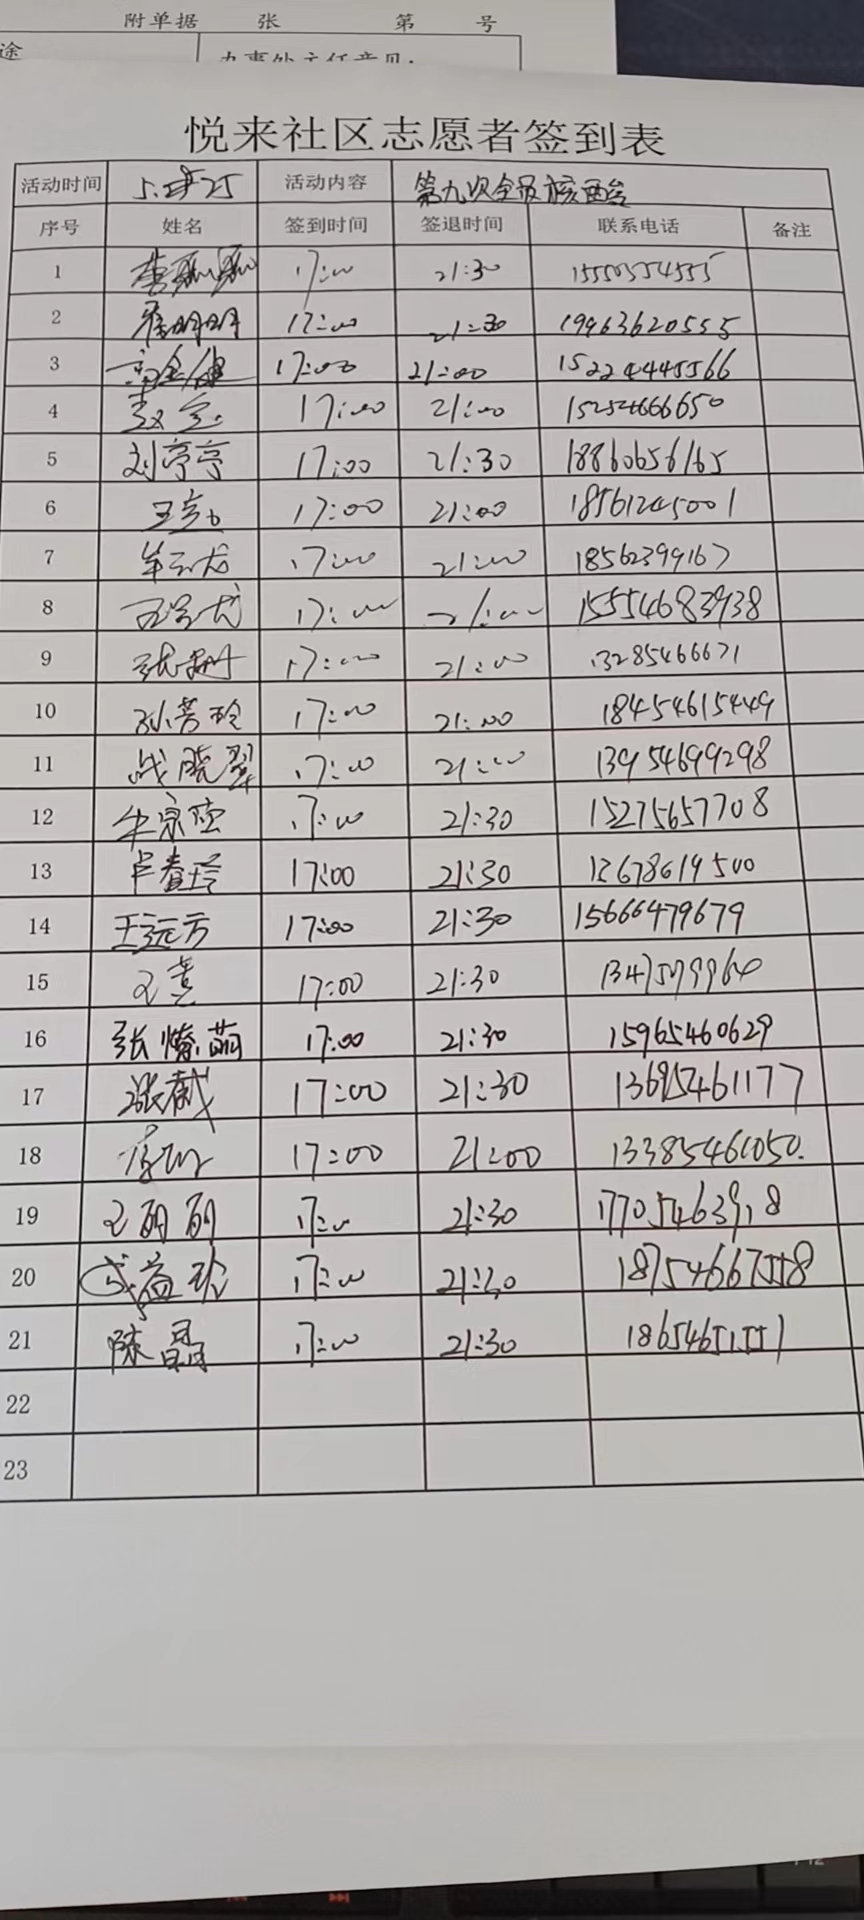 附单据 张 第 号
途
办事处主任意见:
悦来社区志愿者签到表
活动时间 活动内容 第九次全员核酸
序号 姓名 签到时间 签退时间 联系电话 备注
1 17:00 21:30 15550354555
2 崔明明 17:00 21:30 19963620555
3 17:00 21:00 15224445566
4 17:00 21:00 15254666650
5 刘亭亭 17:00 21:30 18860656165
6 17:00 21:00 18561245001
7 17:00 21:00 18562399167
8 17:00 21:00 15554683938
9 17:00 21:00 13285466671
10 孙芳玲 17:00 21:00 18454615449
11 战晓翠 17:00 21:00 13954699298
12 17:00 21:30 15275657708
13 卢春玲 17:00 21:30 13678619500
14 王远方 17:00 21:30 15666479679
15 17:00 21:30
16 17:00 21:30 15965460629
17 17:00 21:30 13695461177
18 17:00 21:00 13385461050.
19 王丽丽 17:00 21:30
20 17:00 21:30 18754667558
21 陈晶 17:00 21:30 18654651551
22
23
F12